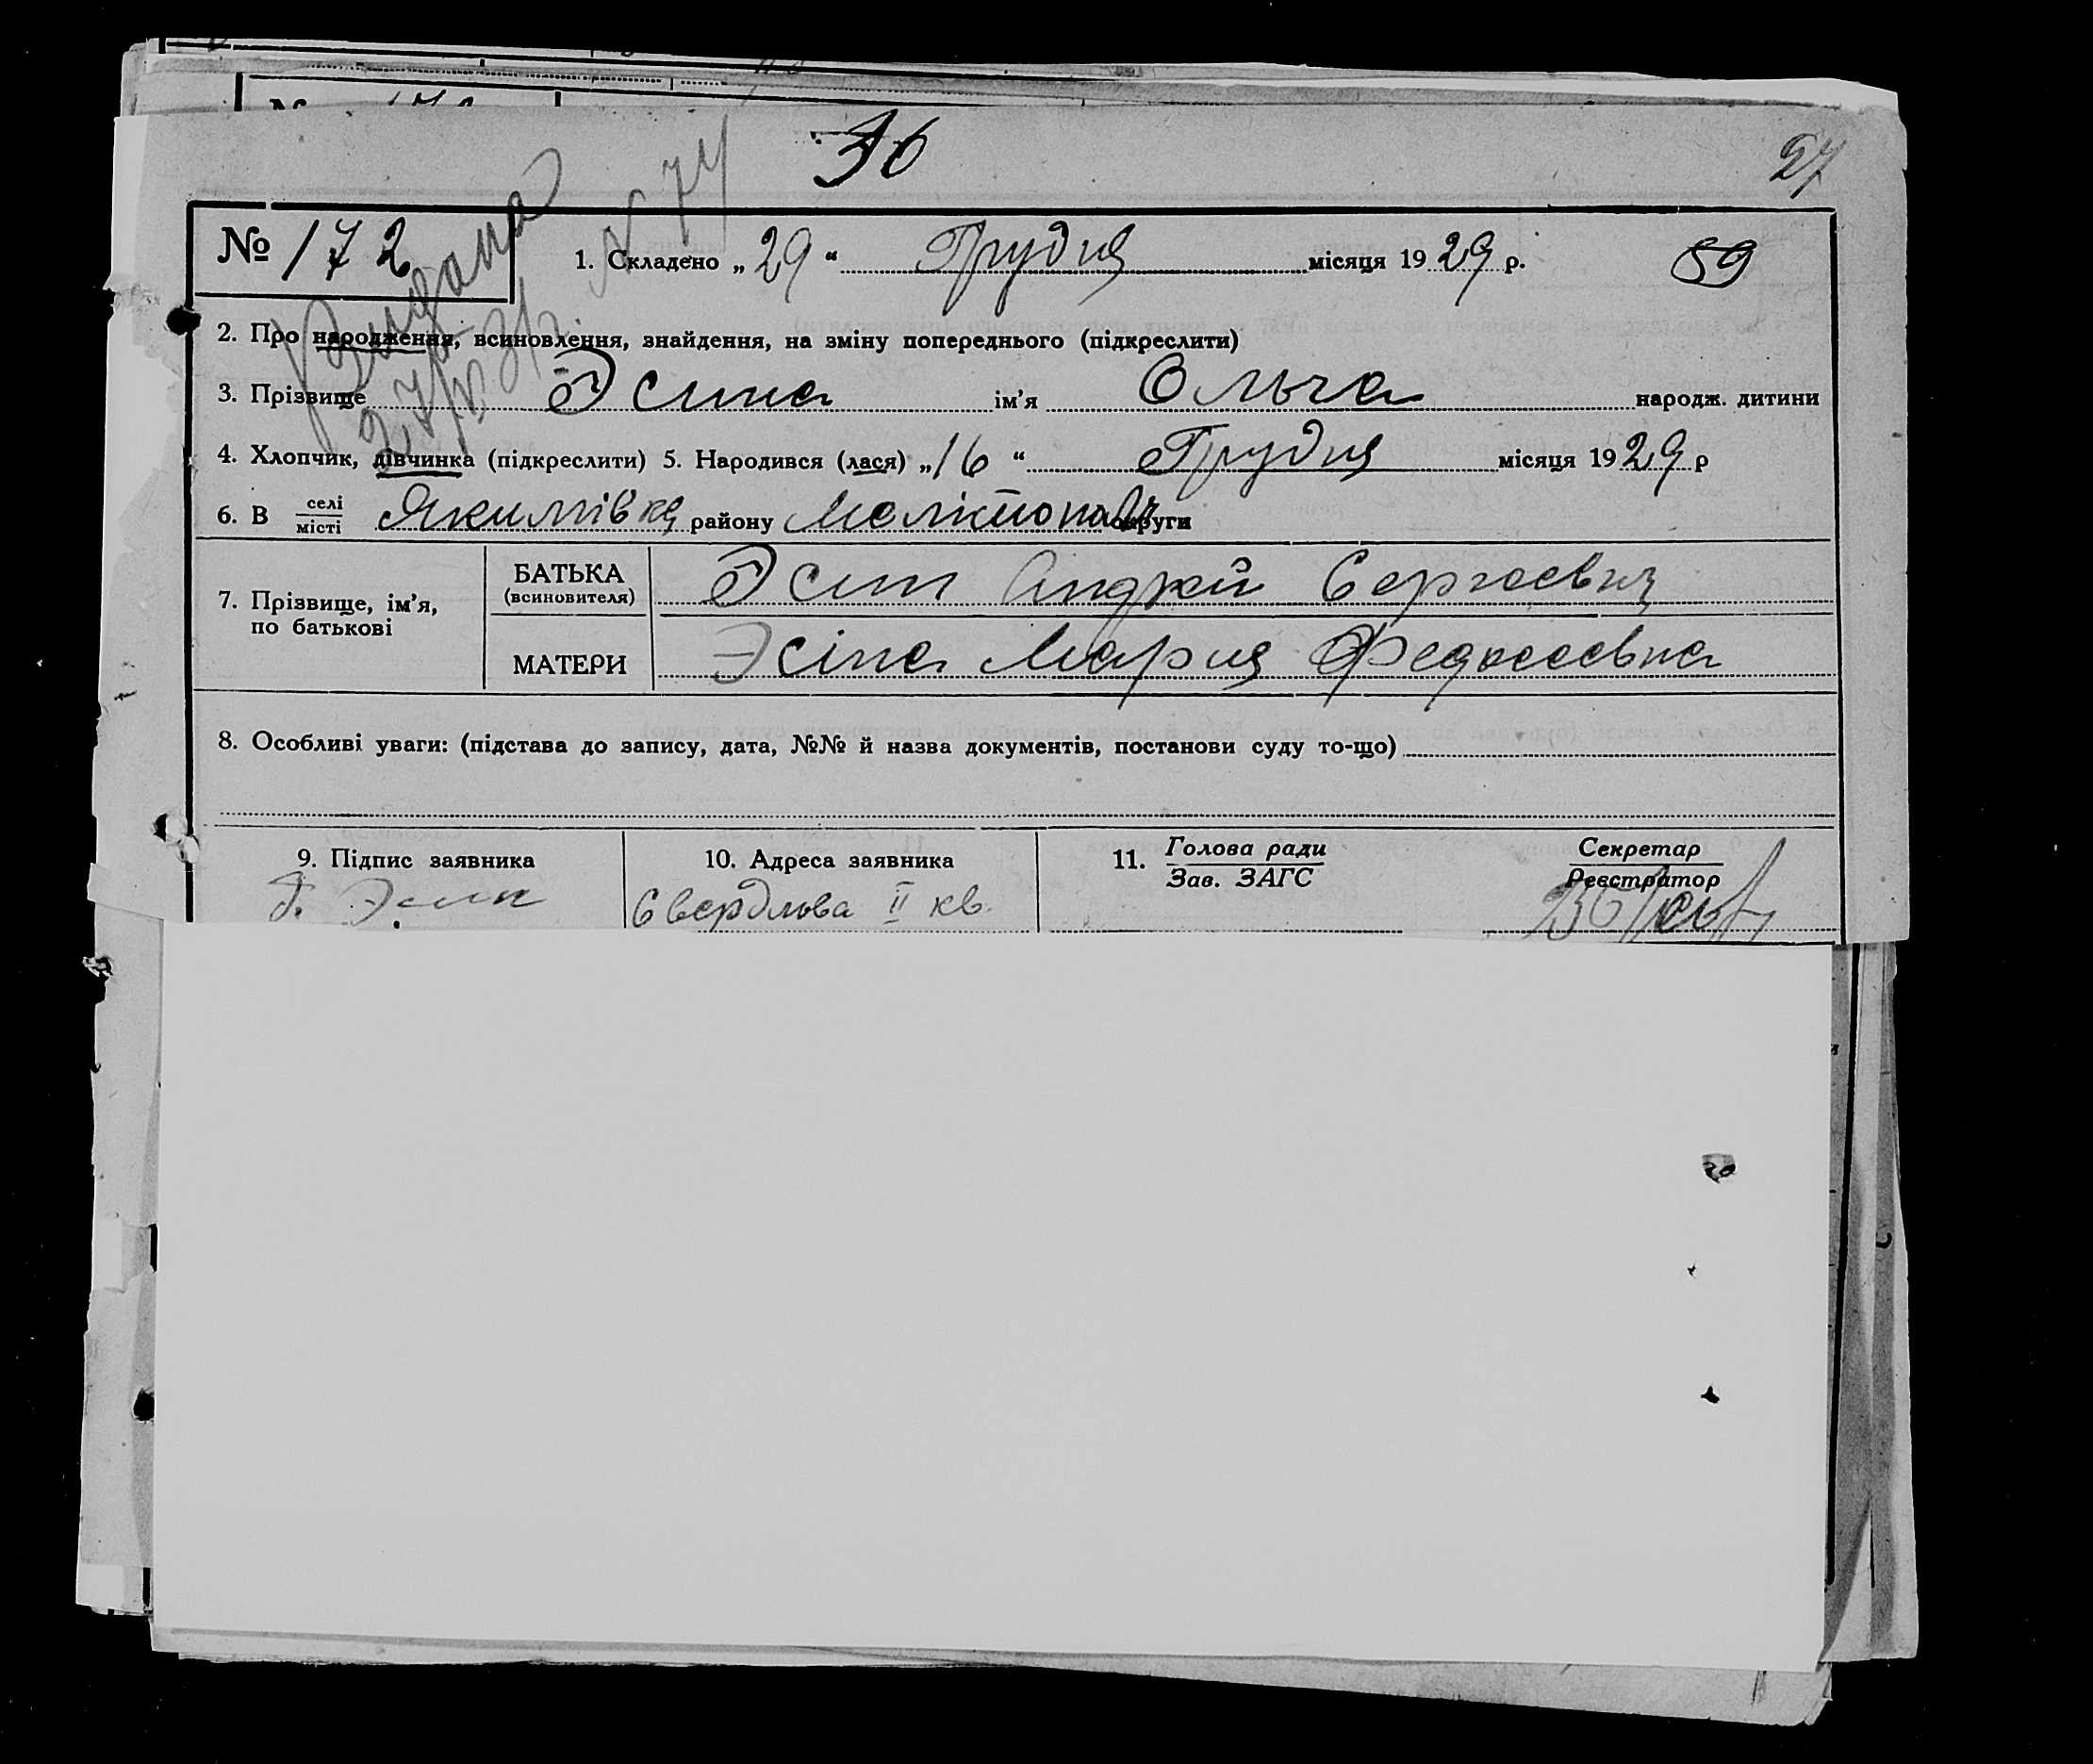 36
27
№ 172
Видана
27/V 31 г. N 74
1. Складено „ 29 “ Грудня місяця 19 29 р.
59
2. Про народження, всиновлення, знайдення, на зміну попереднього (підкреслити)
3. Прізвище Эсина ім’я Ольга народж. дитини
4. Хлопчик, дівчинка (підкреслити) 5. Народився (лася) „ 16 “ Грудня місяця 19 29 р
6. В селі/місті Якимівка району Мелітопол округи
7. Прізвище, ім’я, по батькові
БАТЬКА (всиновителя) Эсип Андрей Сергеевич
МАТЕРИ Эсіпа Мария Федосеевна
8. Особливі уваги: (підстава до запису, дата, №№ й назва документів, постанови суду то-що)
9. Підпис заявника 10. Адреса заявника 11. Голова ради/Зав. ЗАГС Секретар/Реєстратор
Свердлова II кв.